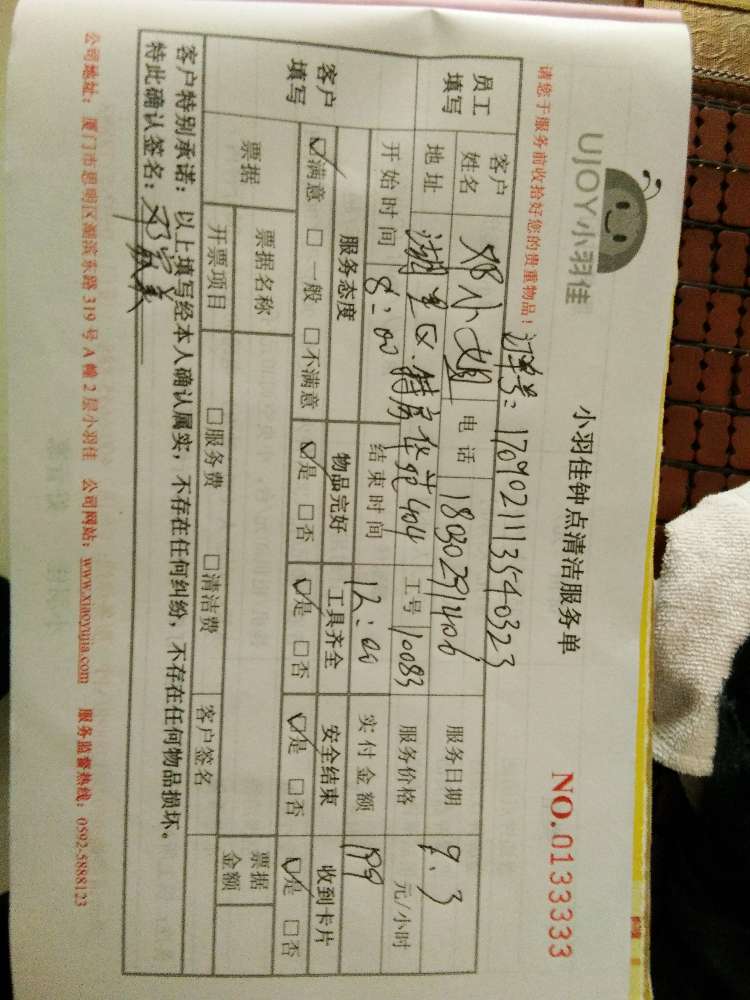 UJOY小羽佳
小羽佳钟点清洁服务单
NO.0133333
请您于服务前收拾好您的贵重物品！
订单号：17090211135540323
员工填写 客户姓名 邓小姐 电话 18030291406 服务日期 9.3
地址 湖里区 华苑404 工号 10083 服务价格 元/小时
开始时间 8:00 结束时间 12:00 实付金额 199
客户填写 服务态度 物品完好 工具齐全 安全结束 收到卡片
☑满意 □一般 □不满意 ☑是 □否 ☑是 □否 ☑是 □否 ☑是 □否
票据 票据名称 票据金额
开票项目 □服务费 □清洁费 客户签名
客户特别承诺：以上填写经本人确认属实，不存在任何纠纷，不存在任何物品损坏。
特此确认签名：
公司地址：厦门市思明区湖滨东路319号A幢2层小羽佳 公司网站：www.xiaoyujia.com 服务监督热线：0592-5888123